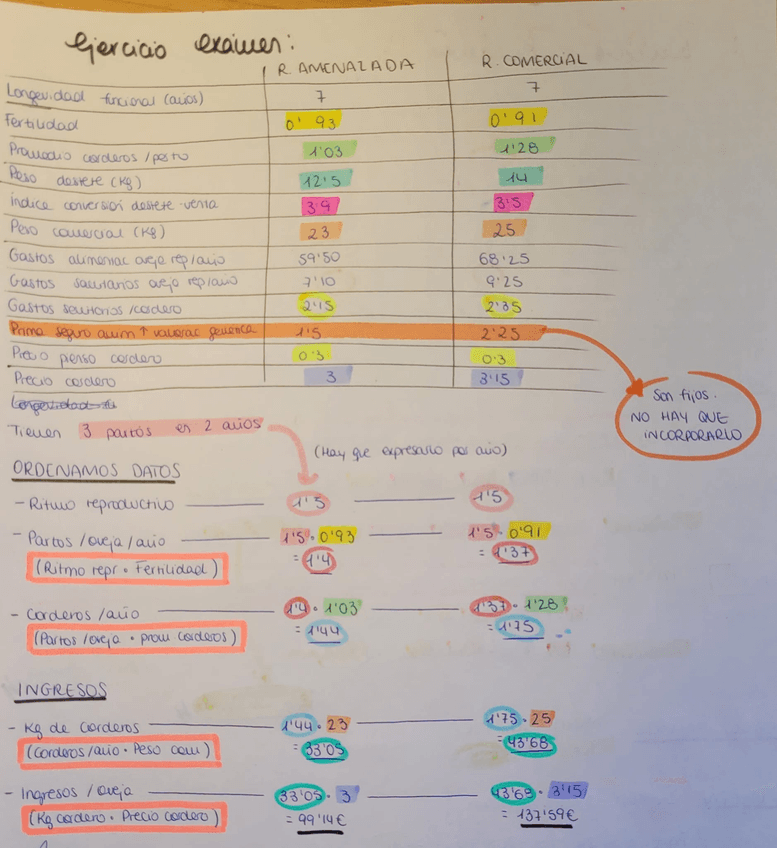 Ejercicio exámen:
R. AMENAZADA R. COMERCIAL
Longevidad funcional (años) 7 7
Fertilidad 0'93 0'91
Promedio corderos/parto 1'03 1'28
Peso destete (kg) 12'5 14
índice conversión destete-venta 3'9 3'5
Peso comercial (kg) 23 25
Gastos alimentac oveja rep/año 59'50 68'25
Gastos sanitarios oveja rep/año 7'10 9'25
Gastos sanitarios/cordero 2'15 2'35
Prima seguro aum ↑ valorac genética 1'5 2'25
Precio pienso cordero 0'3 0'3
Precio cordero 3 3'15
Son fijos.
NO HAY QUE
INCORPORARLO
Tienen 3 partos en 2 años
(Hay que expresarlo por año)
ORDENAMOS DATOS
- Ritmo reproductivo 1'5 1'5
- Partos/oveja/año 1'5 · 0'93 1'5 · 0'91
(Ritmo repr · Fertilidad) = 1'4 = 1'37
- Corderos/año 1'4 · 1'03 1'37 · 1'28
(Partos/oveja · prom corderos) = 1'44 = 1'75
INGRESOS
- Kg de corderos 1'44 · 23 1'75 · 25
(Corderos/año · Peso com) = 33'05 = 43'68
- Ingresos/oveja 33'05 · 3 43'68 · 3'15
(Kg cordero · Precio cordero) = 99'14€ = 137'59€